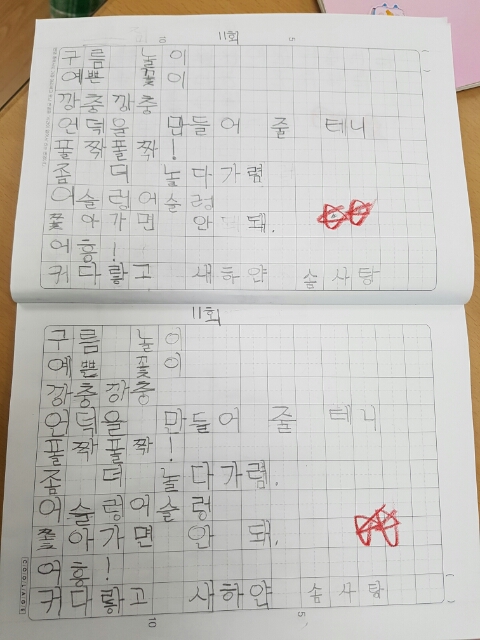 11회
구름 놀이
예쁜 꽃이
깡충깡충
언덕을 만들어 줄 테니
풀짝풀짝!
좀 더 놀다가렴
어슬렁어슬렁
쫓아가면 안 돼.
어흥!
커다랗고 새하얀 솜사탕
11회
구름 놀이
예쁜 꽃이
깡충깡충
언덕을 만들어 줄 테니
풀짝풀짝!
좀 더 놀다가렴.
어슬렁어슬렁
쫓아가면 안 돼.
어흥!
커다랗고 사하얀 솜사탐